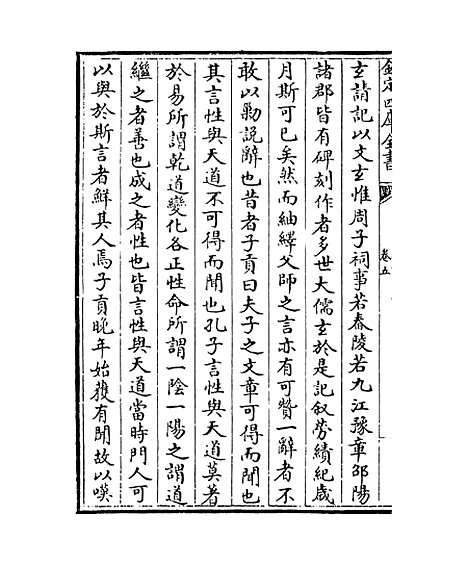 欽定四庫全書
卷五
玄請記以文玄惟周子祠事若舂陵若九江豫章邵陽
諸郡皆有碑刻作者多世大儒玄於是記叙勞績紀歲
月斯可已矣然而紬繹父師之言亦有可贊一辭者不
敢以勦説辭也昔者子貢曰夫子之文章可得而聞也
其言性與天道不可得而聞也孔子言性與天道莫著
於易所謂乾道變化各正性命所謂一陰一陽之謂道
繼之者善也成之者性也皆言性與天道當時門人可
以與於斯言者鮮其人焉子貢晚年始獲有聞故以嘆